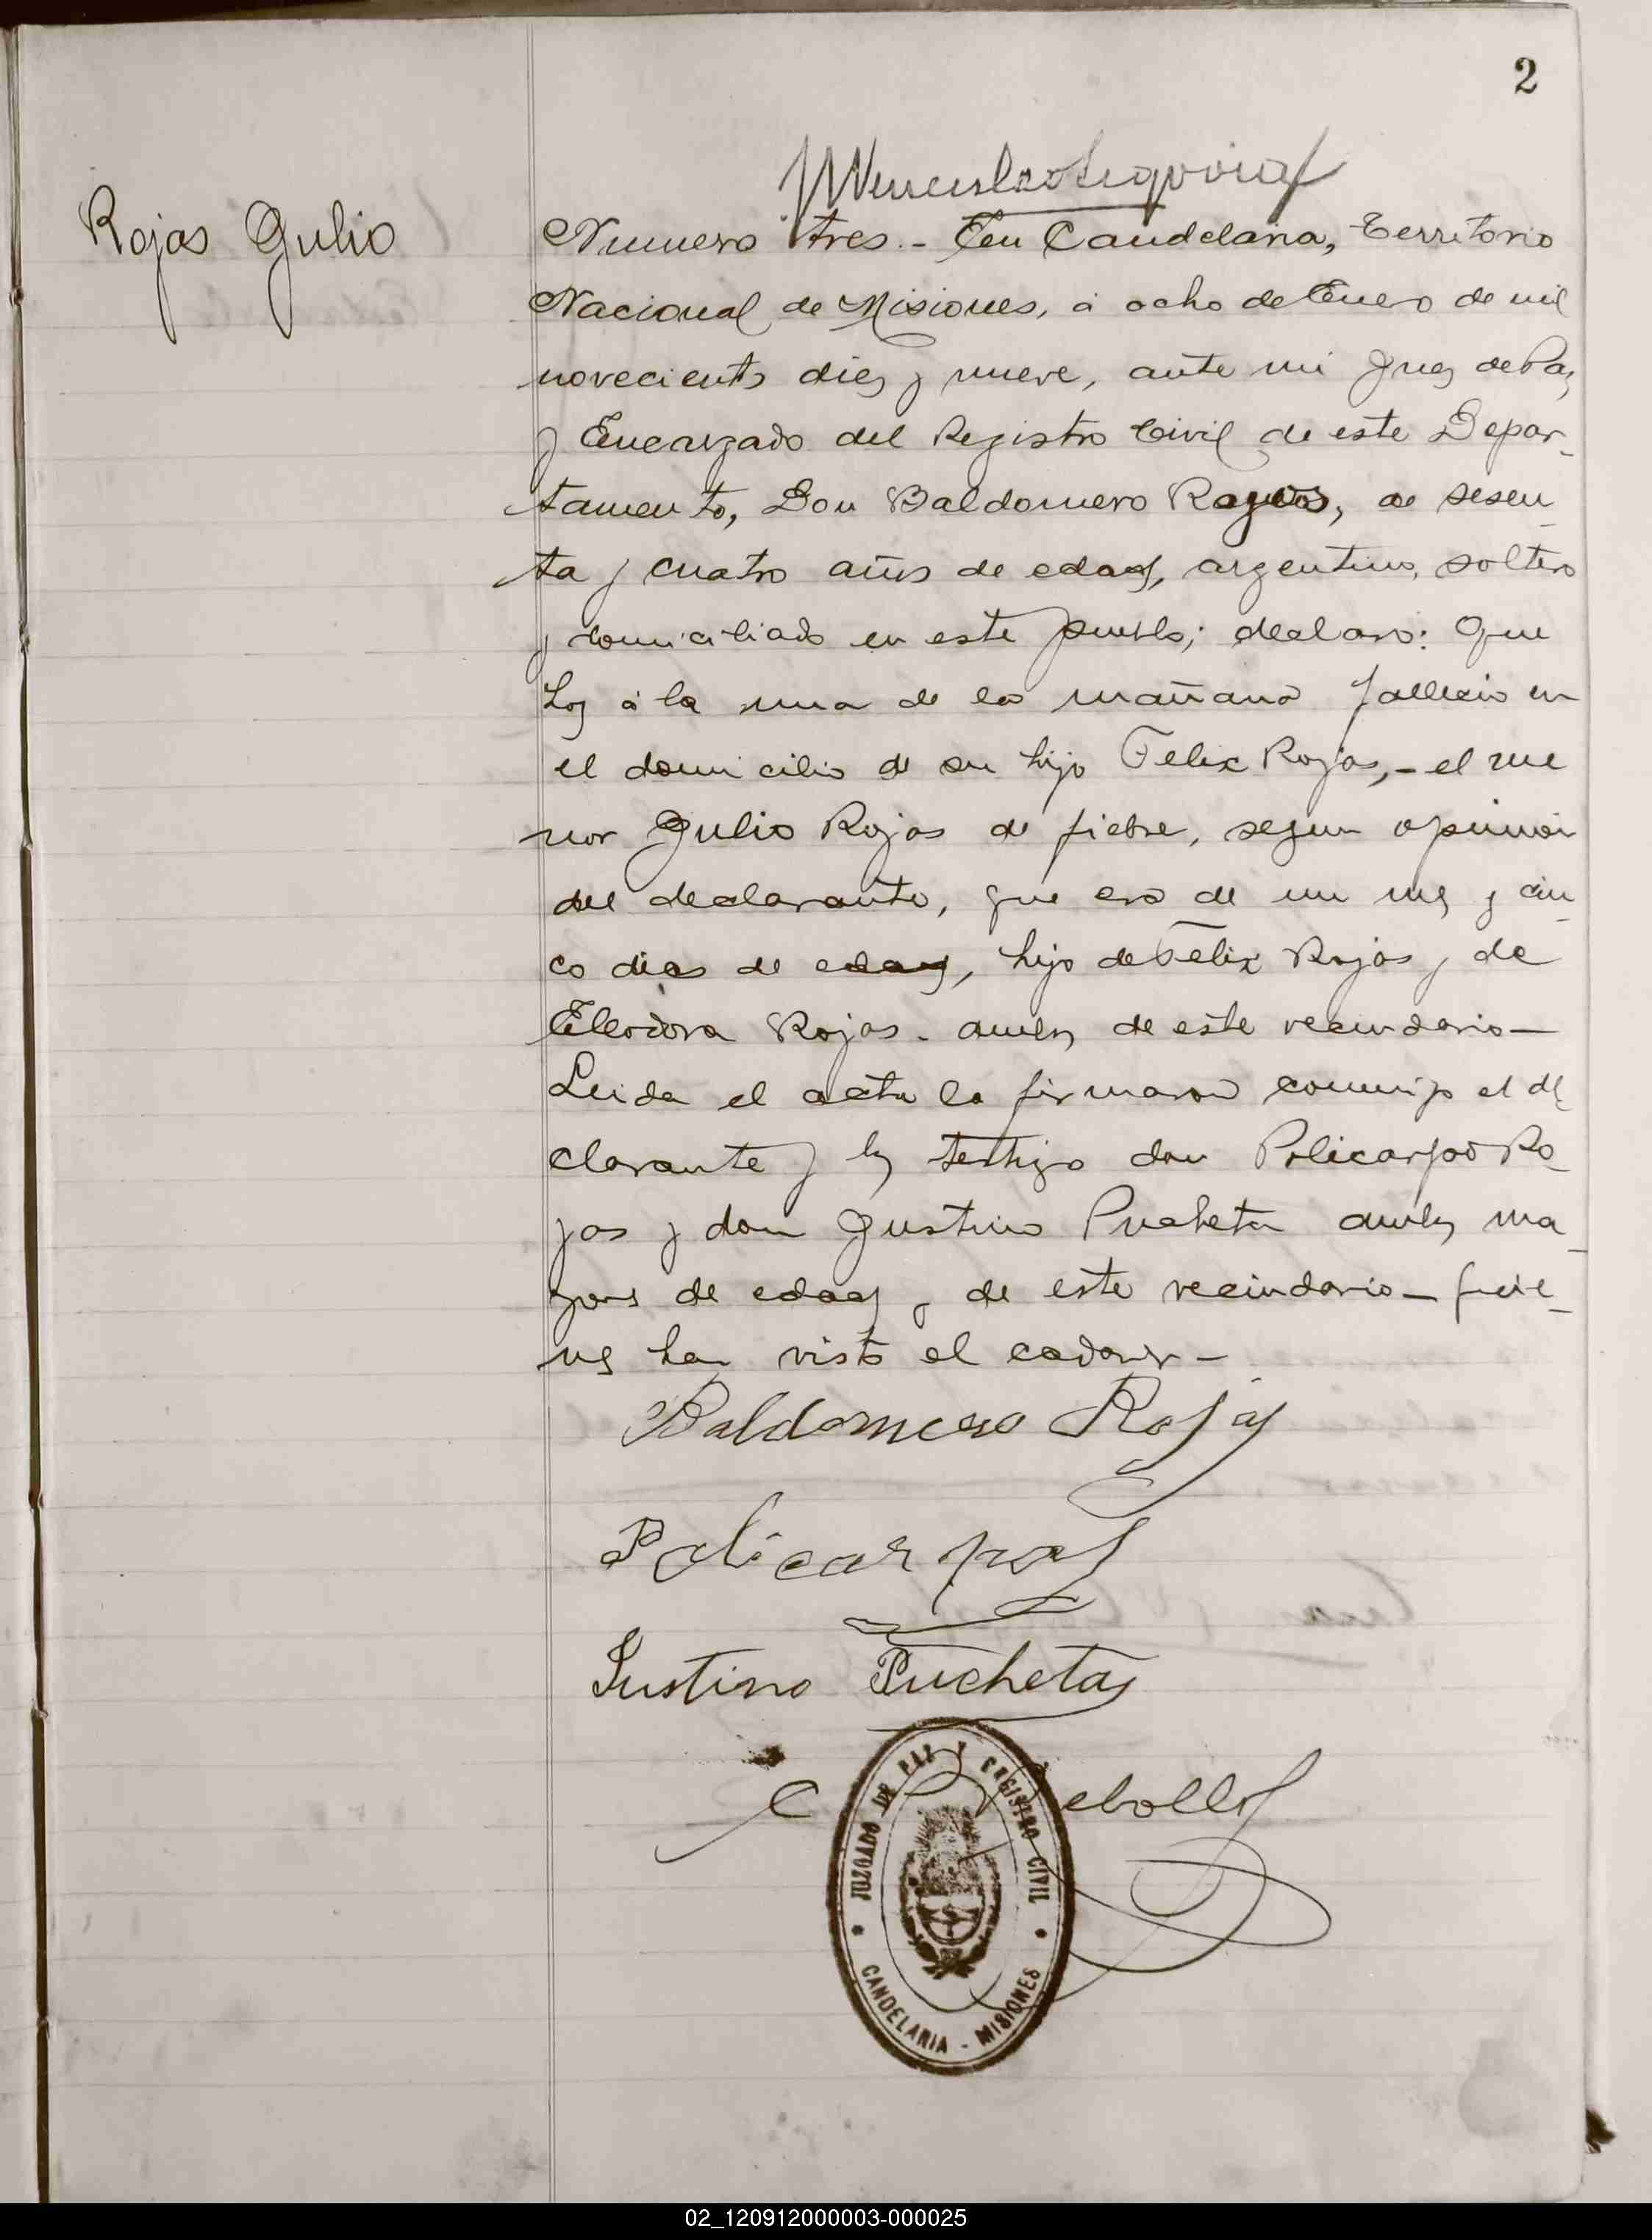 2
Rojas Julio
Numero tres.- En Candelaria, Territorio
Nacional de Misiones, á ocho de Enero de mil
novecientos diez y nueve, ante mi Juez de Paz
y Encargado del Registro Civil de este Depar-
tamento, Don Baldomero Rojas, de sesen-
ta y cuatro años de edad, argentino, soltero
y domiciliado en este pueblo; declaro: Que
hoy á la una de la mañana fallecio en
el domicilio de su hijo Felix Rojas,- el me
nor Julio Rojas de fiebre, segun opinion
del declarante, que era de un mes y cin-
co dias de edad, hijo de Felix Rojas y de
Eleodora Rojas. ambos de este vecindario-
Leida el acta la firmaron conmigo el de-
clarante y los testigo don Policarpo Ro-
jas y don Justino Pucheta ambos ma-
yores de edad y de este vecindario- quie-
nes han visto el cadaver-
Baldomero Rojas
Policarpo
Justino Pucheta
Rebollo
JUZGADO DE PAZ Y REGISTRO CIVIL
CANDELARIA - MISIONES
02_120912000003-000025